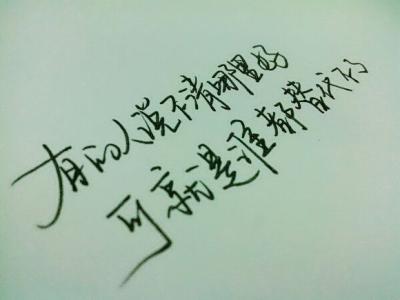 有的人说不清哪里好
可就是谁都替代不了